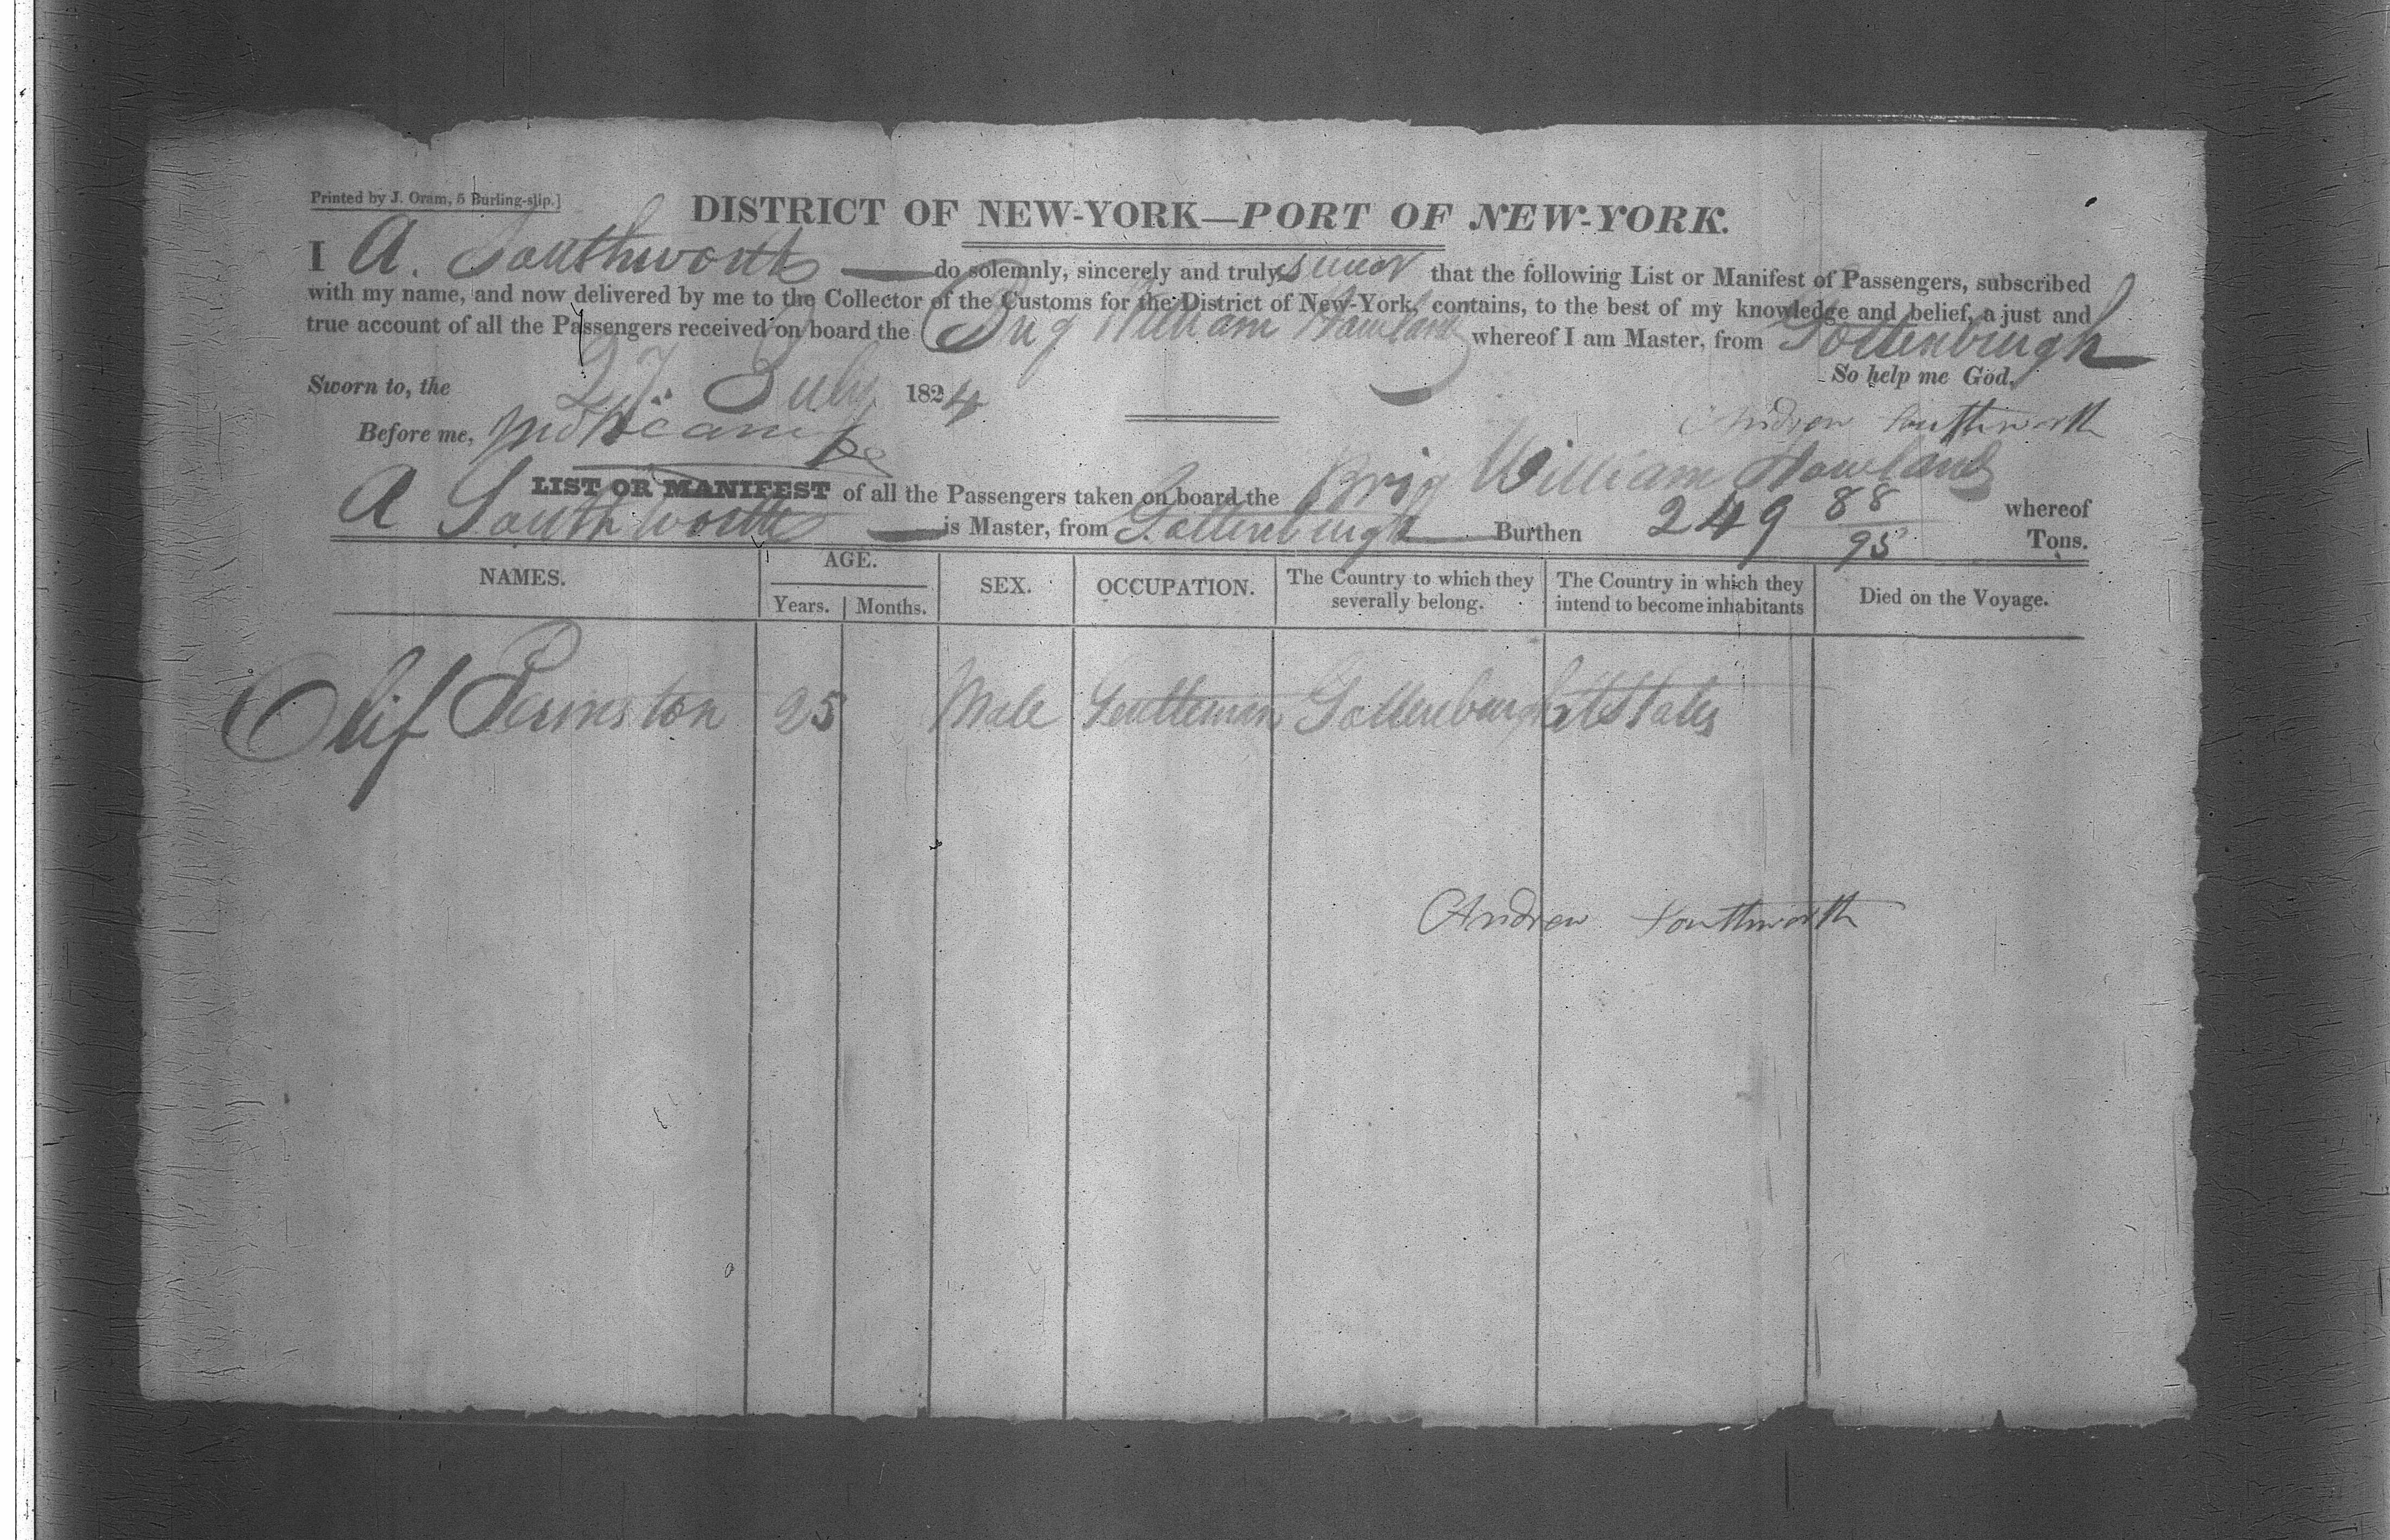 Printed by J. Oram, 5 Burling-slip.]
DISTRICT OF NEW-YORK—PORT OF NEW-YORK.
I A. Southworth do solemnly, sincerely and truly swear that the following List or Manifest of Passengers, subscribed
with my name, and now delivered by me to the Collector of the Customs for the District of New-York, contains, to the best of my knowledge and belief, a just and
true account of all the Passengers received on board the Brig William Howland whereof I am Master, from Gottenburgh
So help me God.
Sworn to, the 27 July 1824
Andrew Southworth
Before me,
LIST OR MANIFEST of all the Passengers taken on board the Brig William Howland whereof
A Southworth is Master, from Gottenburgh Burthen 249 88/95 Tons.
NAMES. AGE. Years. Months. SEX. OCCUPATION. The Country to which they severally belong. The Country in which they intend to become inhabitants Died on the Voyage.
Olif 25 Male Gentleman Gottenburgh States
Andrew Southworth